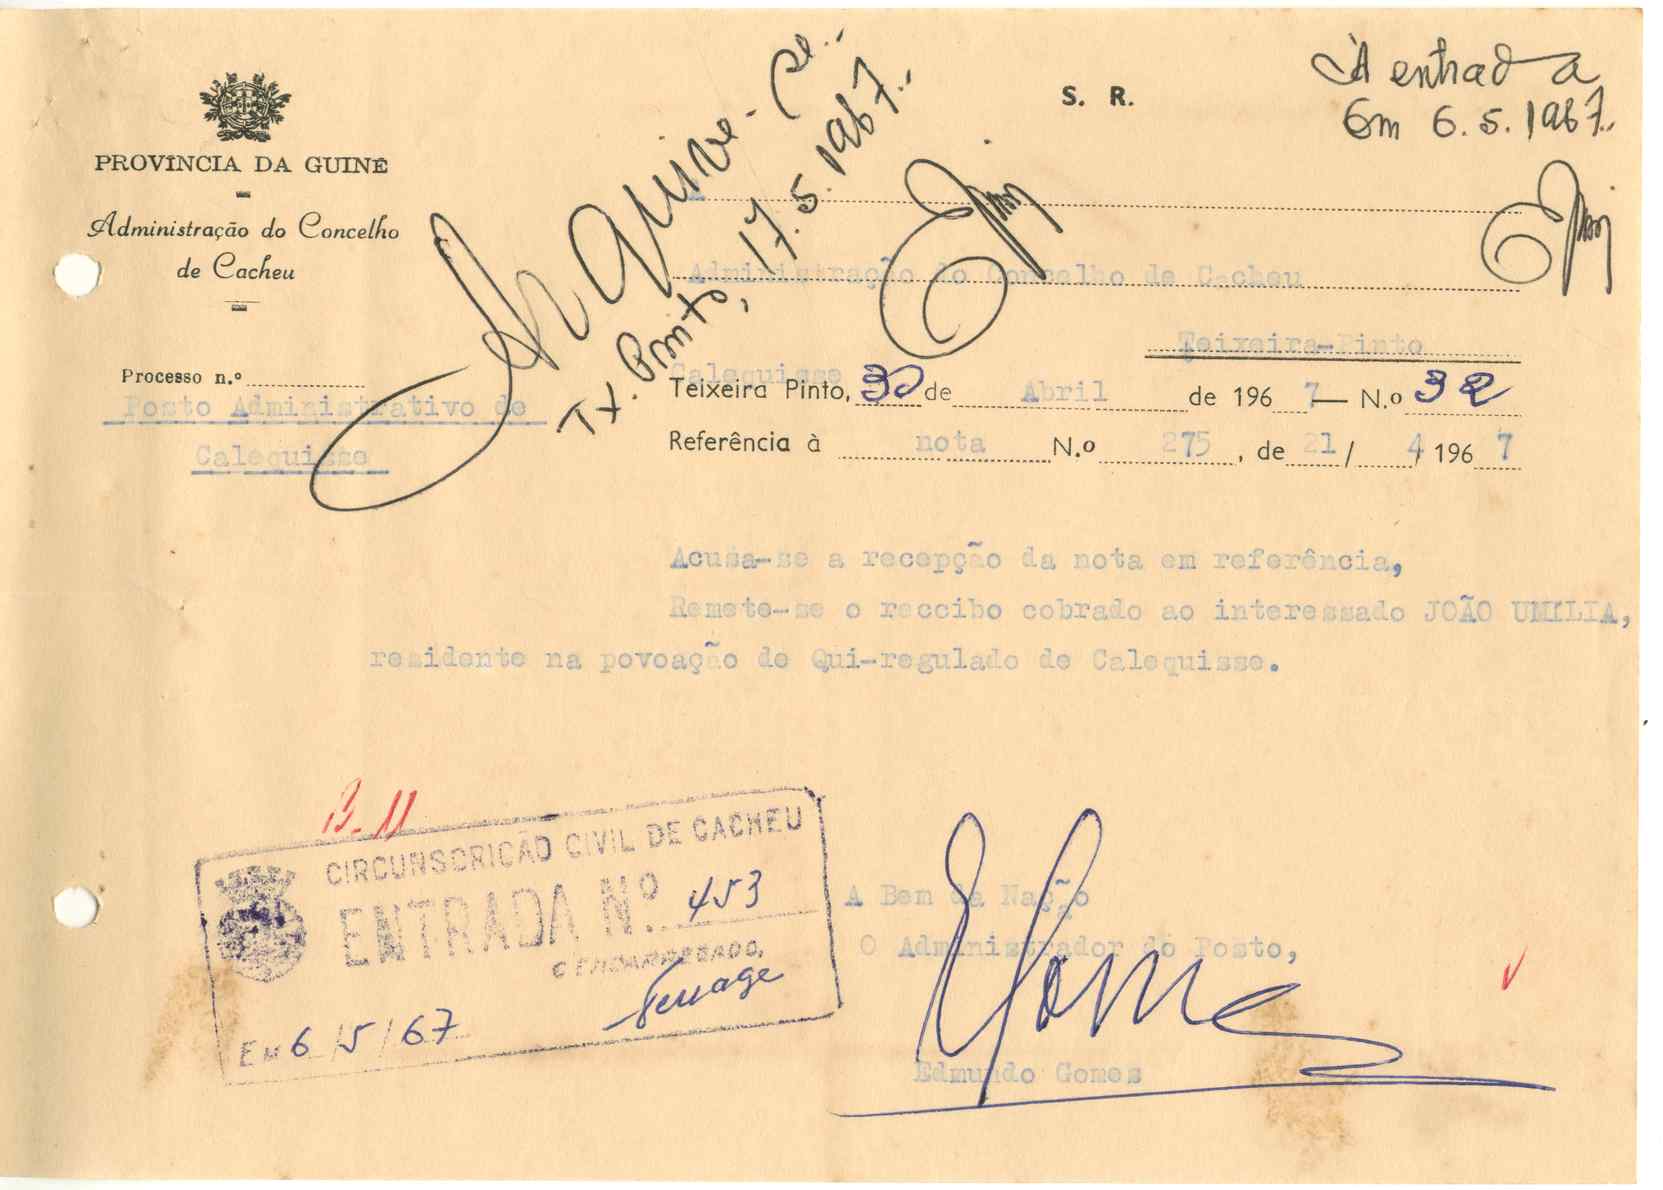 PROVÍNCIA DA GUINÉ
Administração do Concelho
de Cacheu
Processo n.º
Posto Administrativo de
Calequisse
Arquive-se..
Tx. Pinto, 17.5.1967..
S. R.
À entrada
Em 6.5.1967..
À
Administração do Concelho de Cacheu
Teixeira-Pinto
Calequisse
Teixeira Pinto, 30 de Abril de 1967 — N.º 32
Referência à nota N.º 275, de 21/ 4/ 1967
Acusa-se a recepção da nota em referência,
Remete-se o reccibo cobrado ao interessado JOÃO UMILIA,
residente na povoação de Qui-regulado de Calequisse.
B-11
CIRCUNSCRIÇÃO CIVIL DE CACHEU
ENTRADA Nº 453
O ENCARREGADO,
EM 6/5/67
A Bem da Nação
O Administrador do Posto,
Edmundo Gomes